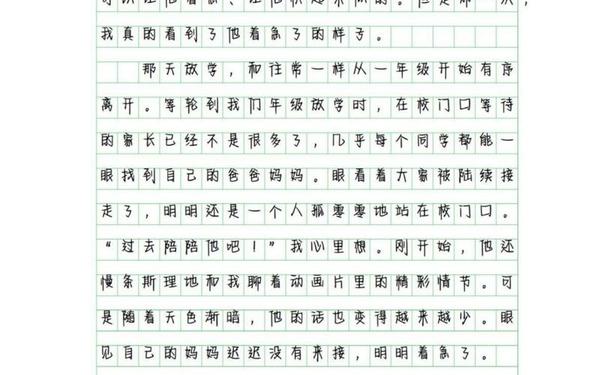 我真的看到了他着急了的样子。
那天放学，和往常一样从一年级开始有序
离开。等轮到我们年级放学时，在校门口等待
的家长已经不是很多了，几乎每个同学都能一
眼找到自己的爸爸妈妈。眼看着大家被陆续接
走了，明明还是一个人孤零零地站在校门口。
“过去陪陪他吧！”我心里想。刚开始，他还
慢条斯理地和我聊着动画片里的精彩情节。可
是随着天色渐暗，他的话也变得越来越少。眼
见自己的妈妈迟迟没有来接，明明着急了。